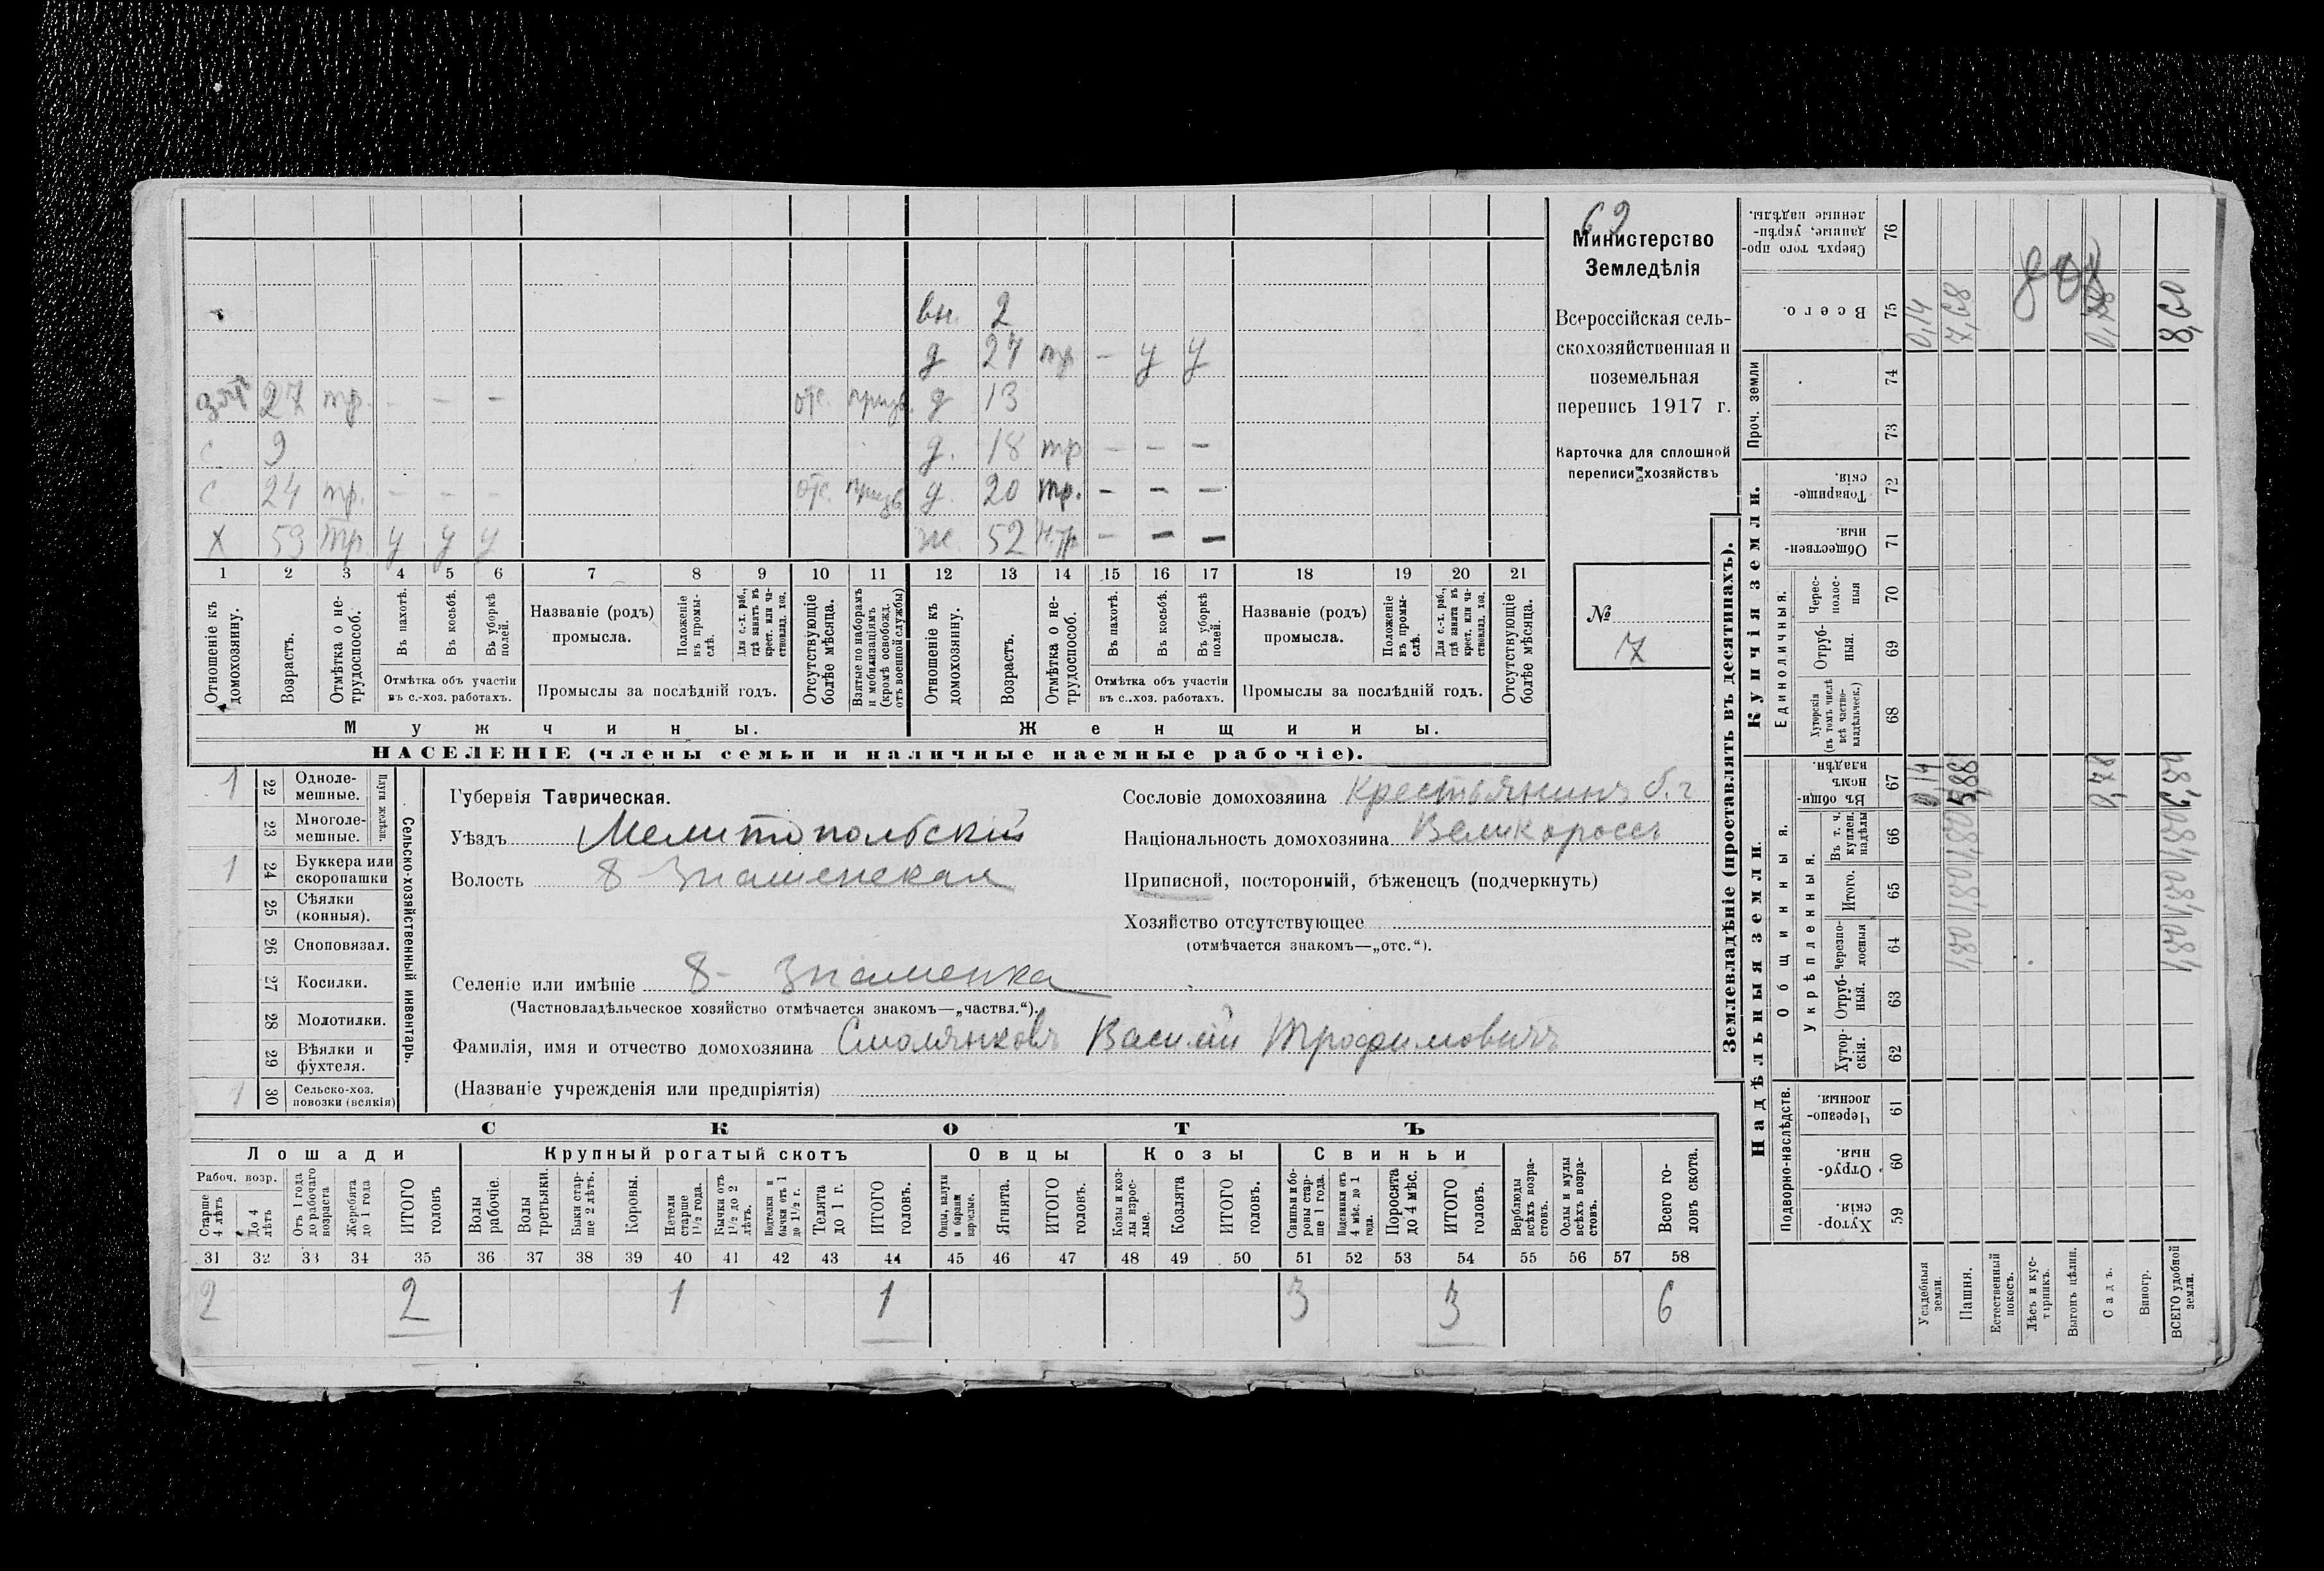 вн. 2
д 24 тр - у у
зять 27 тр. - - - отс. призв. д 13
с 9 д. 18 тр - - -
с 24 тр. - - - отс. призв д. 20 тр. - - -
х 53 тр у у у же. 52 н.тр - - -
1 2 3 4 5 6 7 8 9 10 11 12 13 14 15 16 17 18 19 20 21
Отношеніе къ домохозяину.
Возрастъ.
Отмѣтка о не-трудоспособ.
Въ пахотѣ.
Въ косьбѣ.
Въ уборкѣ полей.
Отмѣтка объ участіи въ с.-хоз. работахъ.
Названіе (родъ) промысла.
Положеніе въ промы-слѣ.
Для с.-х. раб., гдѣ занятъ въ крест. или ча-стновлад. хоз.
Промыслы за послѣдній годъ.
Отсутствующіе болѣе мѣсяца.
Взятые по наборамъ и мобилизаціямъ (кромѣ освобожд. отъ военной службы)
Отношеніе къ домохозяину.
Возрастъ.
Отмѣтка о не-трудоспособ.
Въ пахотѣ.
Въ косьбѣ.
Въ уборкѣ полей.
Отмѣтка объ участіи въ с.-хоз. работахъ.
Названіе (родъ) промысла.
Положеніе въ промы-слѣ.
Для с.-х. раб., гдѣ занятъ въ крест. или ча-стновлад. хоз.
Промыслы за послѣдній годъ.
Отсутствующіе болѣе мѣсяца.
Мужчины.
Женщины.
НАСЕЛЕНІЕ (члены семьи и наличные наемные рабочіе).
69
Министерство
Земледѣлія
Всероссійская сель-
скохозяйственная и
поземельная
перепись 1917 г.
Карточка для сплошной
переписи хозяйствъ
№
7
1 22 Одноле-мешные.
23 Многоле-мешные.
Плуги желѣзн.
1 24 Буккера или скоропашки
25 Сѣялки (конныя).
26 Сноповязал.
27 Косилки.
28 Молотилки.
29 Вѣялки и фухтеля.
1 30 Сельско-хоз. повозки (всякія)
Сельско-хозяйственный инвентарь.
Губернія Таврическая.
Уѣздъ Мелитопольскій
Волость 8 Знаменская
Селеніе или имѣніе 8- Знаменка
(Частновладѣльческое хозяйство отмѣчается знакомъ—„частвл.“).
Фамилія, имя и отчество домохозяина Смолянковъ Василій Трофимовичъ
(Названіе учрежденія или предпріятія)
Сословіе домохозяина Крестьянинъ б.г
Національность домохозяина Великороссъ
Приписной, посторонній, бѣженецъ (подчеркнуть)
Хозяйство отсутствующее
(отмѣчается знакомъ—„отс.“).
СКОТЪ
Лошади Крупный рогатый скотъ Овцы Козы Свиньи
Рабоч. возр.
Старше 4 лѣтъ
До 4 лѣтъ
Отъ 1 года до рабочаго возраста
Жеребята до 1 года
ИТОГО головъ
Волы рабочіе.
Волы третьяки.
Быки стар-ше 2 лѣтъ.
Коровы.
Нетели старше 1½ года.
Бычки отъ 1½ до 2 лѣтъ.
Подтелки и бычки отъ 1 до 1½ г.
Телята до 1 г.
ИТОГО головъ.
Овцы, валухи и бараны взрослые.
Ягнята.
ИТОГО головъ.
Козы и коз-лы взрос-лые.
Козлята
ИТОГО головъ.
Свиньи и бо-ровы стар-ше 1 года.
Подсвинки отъ 4 мѣс. до 1 года.
Поросята до 4 мѣс.
ИТОГО головъ.
Верблюды всѣхъ возра-стовъ.
Ослы и мулы всѣхъ возра-стовъ.
Всего го-ловъ скота.
31 32 33 34 35 36 37 38 39 40 41 42 43 44 45 46 47 48 49 50 51 52 53 54 55 56 57 58
2 2 1 1 3 3 6
Землевладѣніе (проставлять въ десятинахъ).
Надѣльныя земли.
Купчія земли.
Проч. земли
Подворно-наслѣдств.
Общинныя.
Укрѣпленныя.
Единоличныя.
59 Хутор-скія.
60 Отруб-ныя.
61 Черезпо-лосныя.
62 Хутор-скія.
63 Отруб-ныя.
64 Черезпо-лосныя
65 Итого.
66 Въ т. ч. куплен. надѣлы
67 Въ общин-номъ владѣн.
68 Хуторскія (въ томъ числѣ всѣ частно-владѣльческ.)
69 Отруб-ныя.
70 Черес-полос-ныя
71 Обществен-ныя.
72 Товарище-скія.
73
74
75 Всего.
76 Сверхъ того про-данные, укрѣп-ленные надѣлы.
Усадебныя земли. 0,14 0,14
Пашня. 1,80 1,80 1,80 5,88 7,68
Естественный покосъ.
Лѣсъ и кус-тарникъ.
Выгонъ цѣлин.
Садъ. 0,78 0,78
Виногр.
ВСЕГО удобной земли. 1,80 1,80 1,80 6,80 8,60